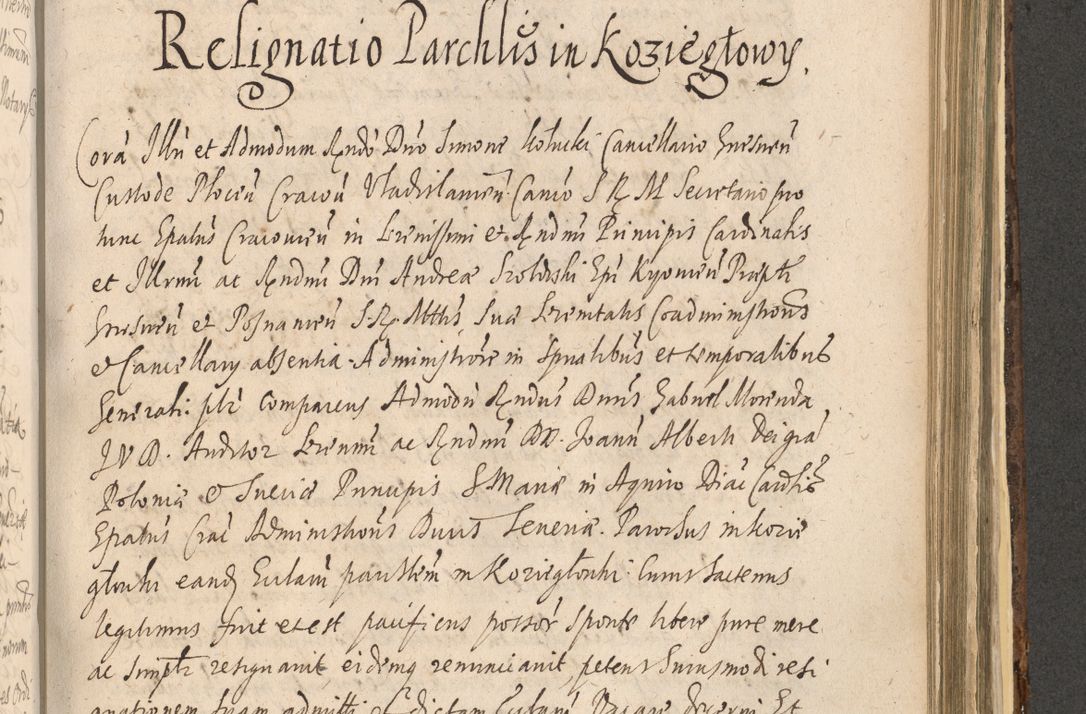 Resignatio Parchlis in Koziegłowy.
Corā Illri et Admodum Rndo Dno Simone Kołucki Cancellario Gnesnen̄
Custode Plocen̄ Cracou̅ Vladislauien̄ Canco S R M Secretario pro
tunc Epatus Cracouien̄ in Serenissimi et Rndmi Principis Cardinalis
et Illrmi ac Rndmi Dni Andreæ Szołdrski Epi Kyouien̄ Præpti
Gnesnen̄ et Posnanien̄ S. R. Mttis, Suæ Serenitatis Coadministrōnis
et Cancellarij absentia Administrōre in Spualibus et temporalibus
Generali. plr comparens Admodū Rndus Dnus Gabriel Morenda
J V D. Auditor Serenmi ac Rndmi DD. Joann̄ Alberti Dei gra
Poloniæ et Sueciæ Principis S Mariæ in Aquiro Diac Cardlis
Epatus Crac Administrōnis Dnus Seueriæ. Parochus in Kozie
głowki eand Ecclam parchlem in Koziegłowki. Cuius hactenus
legitimus fuit et est pacificus possor Sponte libere pure mere
ac Simplr resignauit, eidemq renunciauit, petens huiusmodi resi
gnationem suam admitti et dictam Ecclam Vacare decerni Et